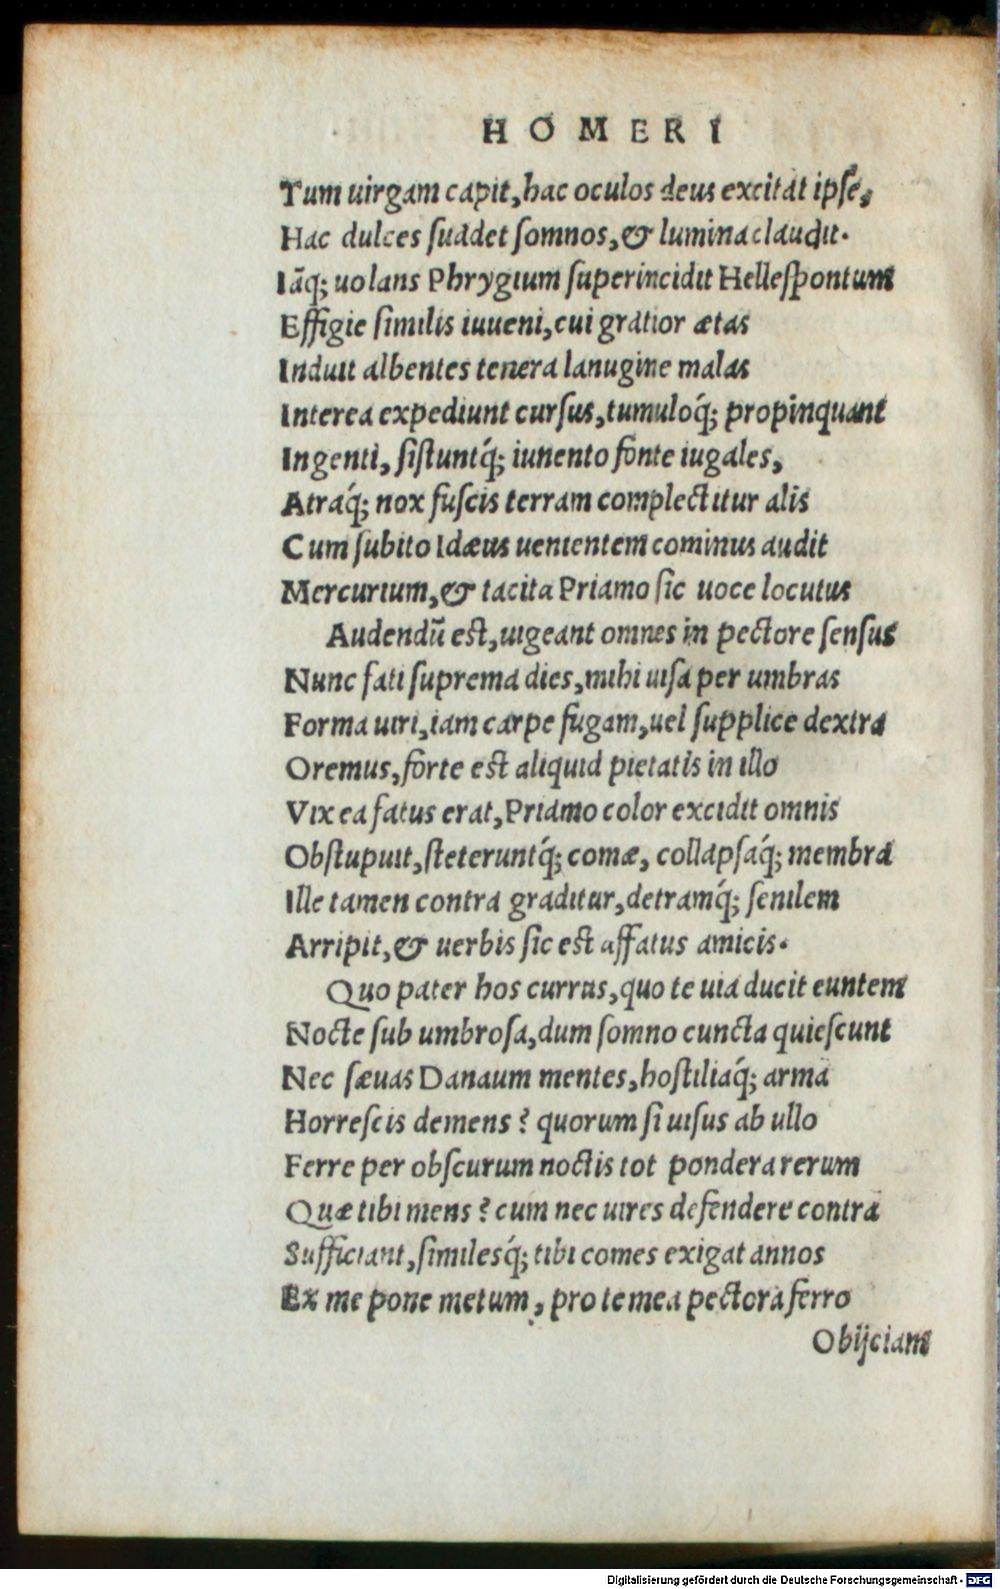 HOMERI
Tum uirgam capit, hac oculos deus excitat ipse,
Hac dulces suadet somnos, & lumina claudit.
Iãq; uolans Phrygium superincidit Hellespontum
Effigie similis iuueni, cui gratior ætas
Induit albentes tenera lanugine malas
Interea expediunt cursus, tumuloq́; propinquant
Ingenti, sistuntq́; iunento fonte iugales,
Atraq́; nox fuscis terram complectitur alis
Cum subito Idæus uenientem cominus audit
Mercurium, & tacita Priamo sic uoce locutus
Audendũ est, uigeant omnes in pectore sensus
Nunc fati suprema dies, mihi uisa per umbras
Forma uiri, iam carpe fugam, uel supplice dextra
Oremus, forte est aliquid pietatis in illo
Vix ea fatus erat, Priamo color excidit omnis
Obstupuit, steteruntq́; comæ, collapsaq́; membra
Ille tamen contra graditur, detramq́; senilem
Arripit, & uerbis sic est affatus amicis.
Quo pater hos currus, quo te uia ducit euntem
Nocte sub umbrosa, dum somno cuncta quiescunt
Nec sæuas Danaum mentes, hostiliaq́; arma
Horrescis demens? quorum si uisus ab ullo
Ferre per obscurum noctis tot pondera rerum
Quæ tibi mens? cum nec uires defendere contra
Sufficiant, similesq́; tibi comes exigat annos
Ex me pone metum, pro te mea pectora ferro
Obijciam
Digitalisierung gefördert durch die Deutsche Forschungsgemeinschaft - DFG